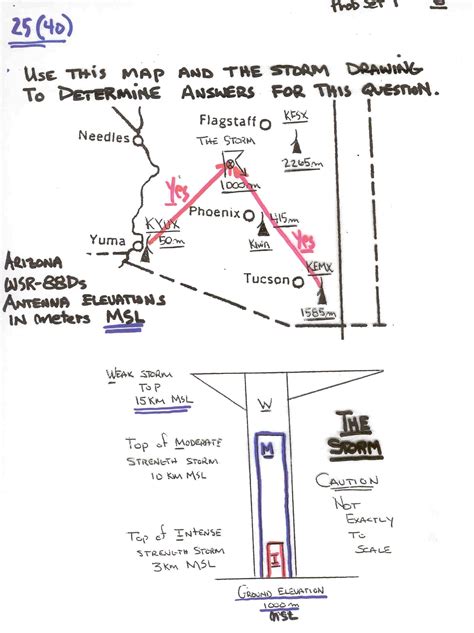 Prob Set 1
25 (40)
USE THIS MAP AND THE STORM DRAWING
TO DETERMINE ANSWERS FOR THIS QUESTION.
Flagstaff
KFSX
Needles
THE STORM
2265m
1000m
Yes
Phoenix
415m
KYUX
KIWA
Yes
Yuma
50m
KEMX
ARIZONA
Tucson
WSR-88Ds
ANTENNA ELEVATIONS
IN meters MSL
1585m
WEAK STORM
TOP
15 KM MSL
W
THE
STORM
Top of MODERATE
STRENGTH STORM
10 KM MSL
M
CAUTION
NOT
EXACTLY
TO
SCALE
Top of INTENSE
STRENGTH STORM
3 KM MSL
I
GROUND ELEVATION
1000 m
MSL